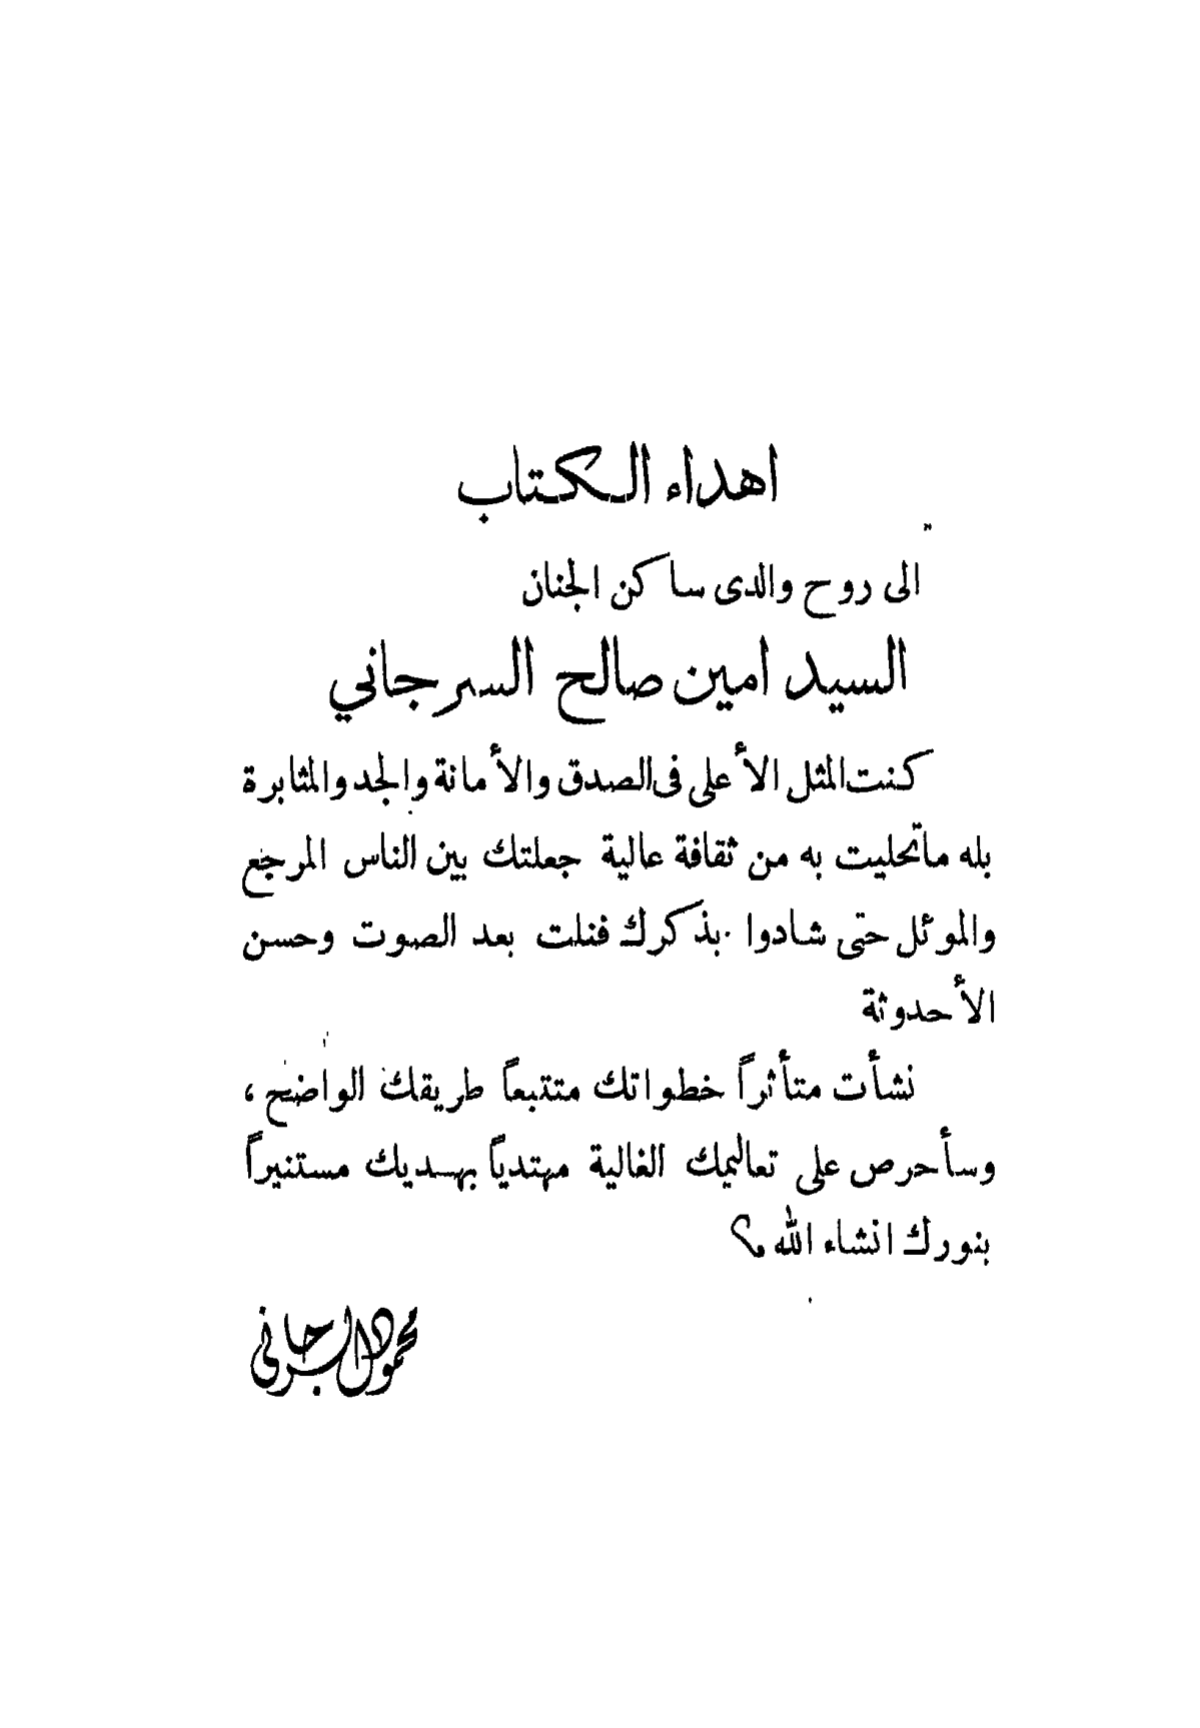 اهداء الكتاب
الى روح والدى ساكن الجنان
السيد امين صالح السرجاني
كنت المثل الأعلى فى الصدق والأمانة والجد والمثابرة
بله ماتحليت به من ثقافة عالية جعلتك بين الناس المرجع
والموئل حتى شادوا بذكرك فنلت بعد الصوت وحسن
الأحدوثة
نشأت متأثراً خطواتك متتبعاً طريقك الواضح ،
وسأحرص على تعاليمك الغالية مهتدياً بهديك مستنيراً
بنورك انشاء الله
محمود السرجانى